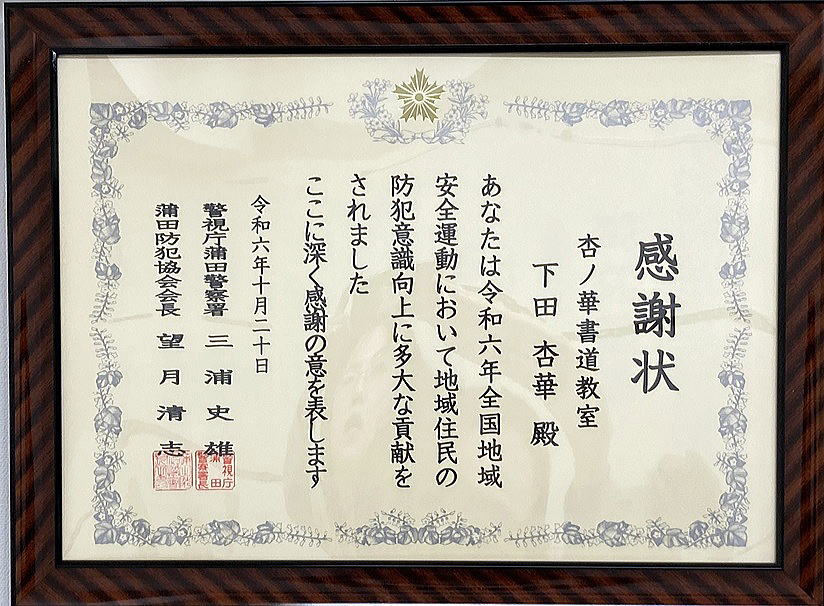 感謝状
杏ノ華書道教室
下田 杏華 殿
あなたは令和六年全国地域
安全運動において地域住民の
防犯意識向上に多大な貢献を
されました
ここに深く感謝の意を表します
令和六年十月二十日
警視庁蒲田警察署 三浦史雄
蒲田防犯協会会長 望月清志
警視庁
蒲田
警察署長